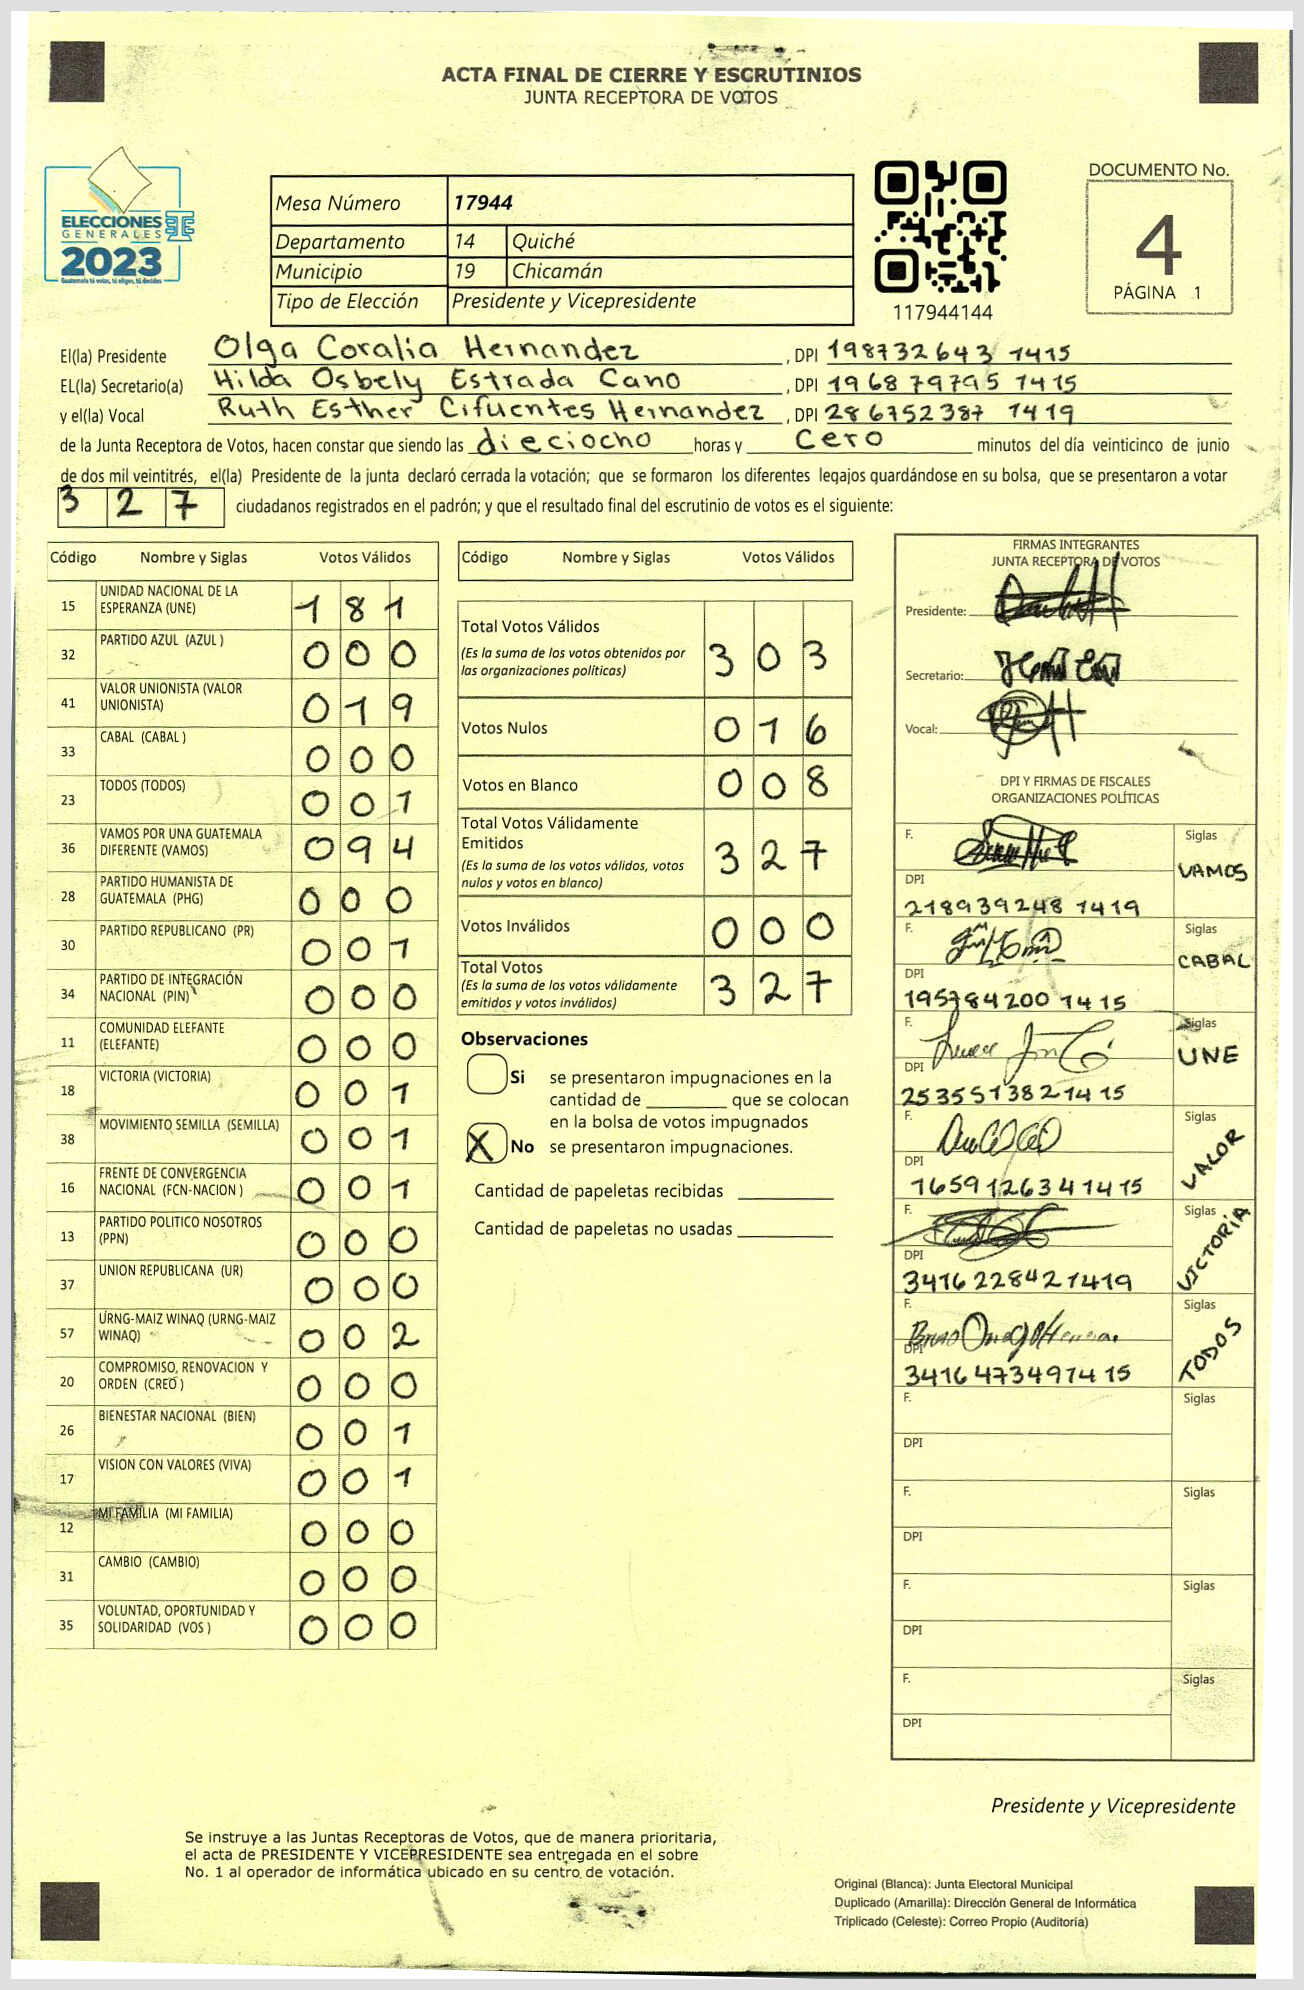 ACTA FINAL DE CIERRE Y ESCRUTINIOS
JUNTA RECEPTORA DE VOTOS
ELECCIONES
GENERALES
2023
Guatemala tú votas, tú eliges, tú decides
Mesa Número 17944
Departamento 14 Quiché
Municipio 19 Chicamán
Tipo de Elección Presidente y Vicepresidente
117944144
DOCUMENTO No.
4
PÁGINA 1
El(la) Presidente Olga Coralia Hernandez , DPI 198732643 1415
EL(la) Secretario(a) Hilda Osbely Estrada Cano , DPI 196879795 1415
y el(la) Vocal Ruth Esther Cifuentes Hernandez , DPI 286752387 1419
de la Junta Receptora de Votos, hacen constar que siendo las dieciocho horas y Cero minutos del día veinticinco de junio
de dos mil veintitrés, el(la) Presidente de la junta declaró cerrada la votación; que se formaron los diferentes legajos guardándose en su bolsa, que se presentaron a votar
327 ciudadanos registrados en el padrón; y que el resultado final del escrutinio de votos es el siguiente:
Código Nombre y Siglas Votos Válidos
15 UNIDAD NACIONAL DE LA ESPERANZA (UNE) 181
32 PARTIDO AZUL (AZUL ) 000
41 VALOR UNIONISTA (VALOR UNIONISTA) 019
33 CABAL (CABAL ) 000
23 TODOS (TODOS) 001
36 VAMOS POR UNA GUATEMALA DIFERENTE (VAMOS) 094
28 PARTIDO HUMANISTA DE GUATEMALA (PHG) 000
30 PARTIDO REPUBLICANO (PR) 001
34 PARTIDO DE INTEGRACIÓN NACIONAL (PIN) 000
11 COMUNIDAD ELEFANTE (ELEFANTE) 000
18 VICTORIA (VICTORIA) 001
38 MOVIMIENTO SEMILLA (SEMILLA) 001
16 FRENTE DE CONVERGENCIA NACIONAL (FCN-NACION ) 001
13 PARTIDO POLITICO NOSOTROS (PPN) 000
37 UNION REPUBLICANA (UR) 000
57 URNG-MAIZ WINAQ (URNG-MAIZ WINAQ) 002
20 COMPROMISO, RENOVACION Y ORDEN (CREO ) 000
26 BIENESTAR NACIONAL (BIEN) 001
17 VISION CON VALORES (VIVA) 001
12 MI FAMILIA (MI FAMILIA) 000
31 CAMBIO (CAMBIO) 000
35 VOLUNTAD, OPORTUNIDAD Y SOLIDARIDAD (VOS ) 000
Código Nombre y Siglas Votos Válidos
Total Votos Válidos 303
(Es la suma de los votos obtenidos por
las organizaciones políticas)
Votos Nulos 016
Votos en Blanco 008
Total Votos Válidamente
Emitidos 327
(Es la suma de los votos válidos, votos
nulos y votos en blanco)
Votos Inválidos 000
Total Votos 327
(Es la suma de los votos válidamente
emitidos y votos inválidos)
Observaciones
Si se presentaron impugnaciones en la
cantidad de ________ que se colocan
en la bolsa de votos impugnados
X No se presentaron impugnaciones.
Cantidad de papeletas recibidas
Cantidad de papeletas no usadas
FIRMAS INTEGRANTES
JUNTA RECEPTORA DE VOTOS
Presidente:
Secretario:
Vocal:
DPI Y FIRMAS DE FISCALES
ORGANIZACIONES POLÍTICAS
F. Siglas VAMOS
DPI 218939248 1419
F. Siglas CABAL
DPI 195784200 1415
F. Siglas UNE
DPI 253551382 1415
F. Siglas VALOR
DPI 165912634 1415
F. Siglas VICTORIA
DPI 341622842 1419
F. Siglas TODOS
DPI 341647349 1415
F. Siglas
DPI
F. Siglas
DPI
F. Siglas
DPI
F. Siglas
DPI
Presidente y Vicepresidente
Se instruye a las Juntas Receptoras de Votos, que de manera prioritaria,
el acta de PRESIDENTE Y VICEPRESIDENTE sea entregada en el sobre
No. 1 al operador de informática ubicado en su centro de votación.
Original (Blanca): Junta Electoral Municipal
Duplicado (Amarilla): Dirección General de Informática
Triplicado (Celeste): Correo Propio (Auditoría)